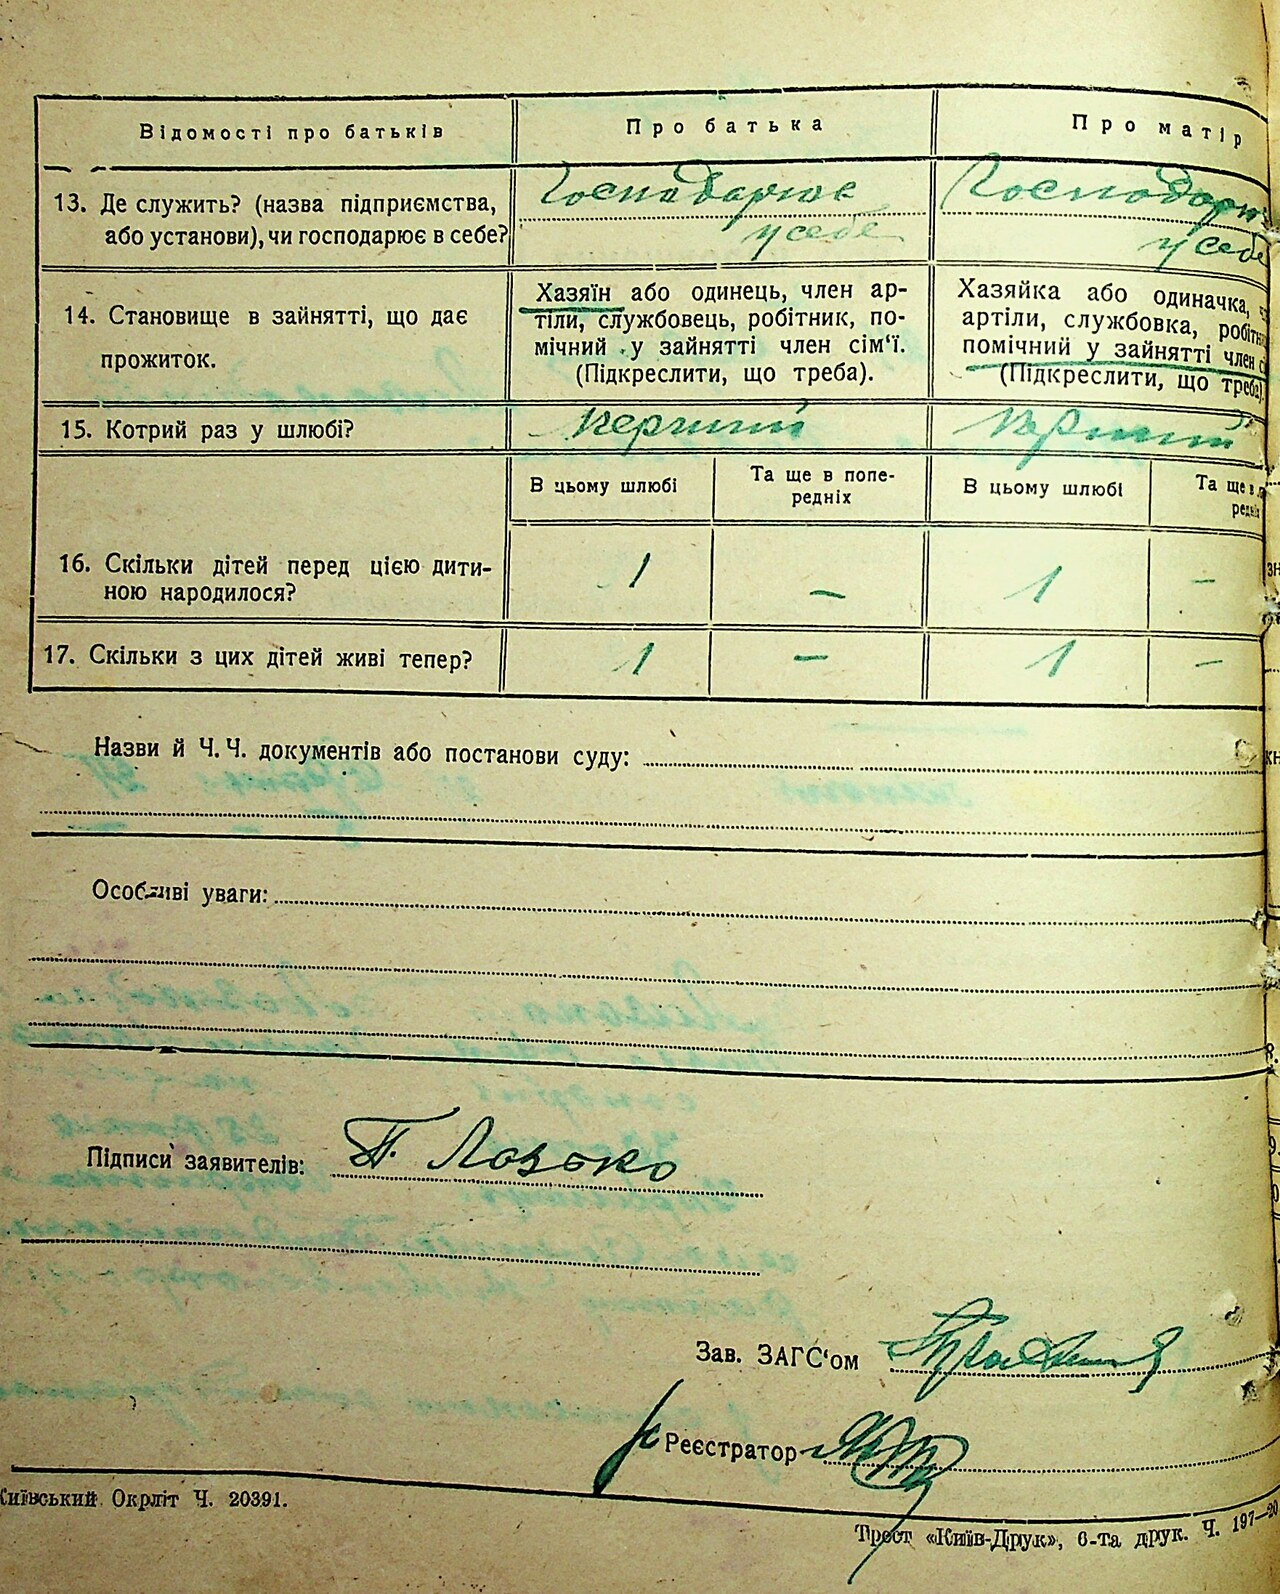 Відомості про батьків
Про батька
Про матір
13. Де служить? (назва підприємства,
або установи), чи господарює в себе?
Господарює
у себе
у себе
14. Становище в зайнятті, що дає
прожиток.
Хазяїн або одинець, член ар-
тіли, службовець, робітник, по-
мічний у зайнятті член сім‘ї.
(Підкреслити, що треба).
Хазяйка або одиначка,
артіли, службовка,
помічний у зайнятті член
(Підкреслити, що треба).
15. Котрий раз у шлюбі?
перший
перший
В цьому шлюбі
Та ще в попе-
редніх
В цьому шлюбі
Та ще в
16. Скільки дітей перед цією дити-
ною народилося?
1
–
1
–
17. Скільки з цих дітей живі тепер?
1
–
1
–
Назви й Ч. Ч. документів або постанови суду:
Особливі уваги:
Підписи заявителів: П. Лозько
Зав. ЗАГС‘ом
Реєстратор
Київський Окрліт Ч. 20391.
Трест «Київ-Друк», 6-та друк. Ч. 197—20